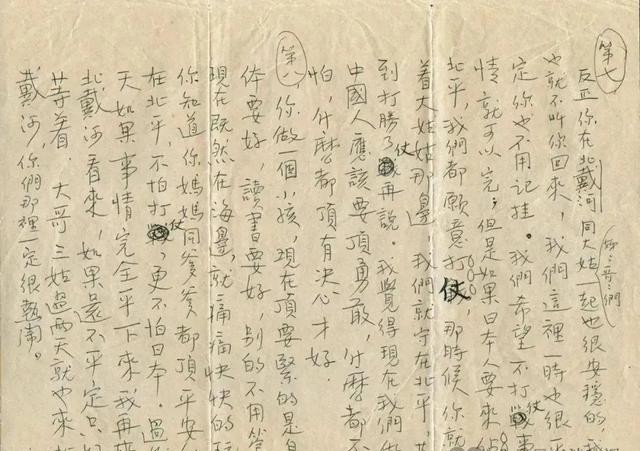 第七
反正你在北戴河同大姑姐姐哥哥們一起也很安穩的，我
也就不叫你回來，我們這裡一時也很平
定你也不用記挂。我們希望不打仗事
情就可以完；但是如果日本人要來佔
北平，我們都願意打仗，那時候你就
着大姑姑那邊，我們就守在北平，等
到打勝了仗再說。我覺得現在我們做
中國人應該要頂勇敢，什麼都不
怕，什麼都頂有決心才好．
第八，你做一個小孩，現在頂要緊的是身
体要好，讀書要好，別的不用管
現在既然在海邊，就痛痛快快的玩
你知道你媽媽同爹爹都頂平安
在北平，不怕打仗，更不怕日本。過
天如果事情完全平下來，我再來
北戴河看你，如果還不平定，只好
等着．大哥三姑過兩天就也來
戴河，你們那裡一定很熱鬧。